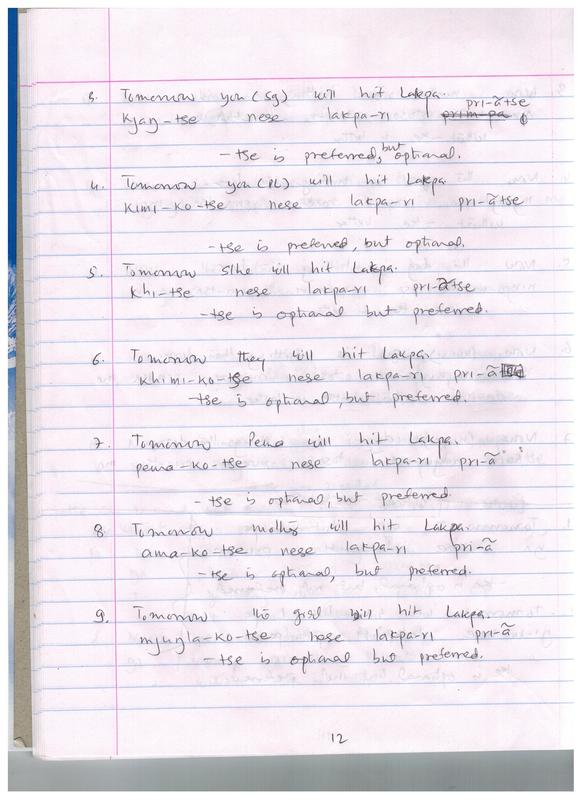 3. Tomorrow you (sg) will hit Lakpa.
Kjaŋ-tse nese lakpa-ri pri-ã tse
-tse is preferred, but optional.
4. Tomorrow you (PL) will hit Lakpa.
kimi-ko-tse nese lakpa-ri pri-ã tse
-tse is preferred, but optional.
5. Tomorrow s/he will hit Lakpa.
khi-tse nese lakpa-ri pri-ã tse
-tse is optional but preferred.
6. Tomorrow they will hit Lakpa.
khimi-ko-tse nese lakpa-ri pri-ã
-tse is optional, but preferred.
7. Tomorrow Pema will hit Lakpa.
pema-ko-tse nese lakpa-ri pri-ã
-tse is optional, but preferred.
8. Tomorrow mother will hit Lakpa.
ama-ko-tse nese lakpa-ri pri-ã
-tse is optional, but preferred.
9. Tomorrow the girl will hit Lakpa.
mjuŋla-ko-tse nese lakpa-ri pri-ã
-tse is optional but preferred.
12